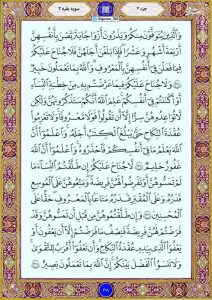 جزء ۲
سوره بقره ۲
وَٱلَّذِينَ يُتَوَفَّوْنَ مِنكُمْ وَيَذَرُونَ أَزْوَٰجًا يَتَرَبَّصْنَ بِأَنفُسِهِنَّ
أَرْبَعَةَ أَشْهُرٍ وَعَشْرًا فَإِذَا بَلَغْنَ أَجَلَهُنَّ فَلَا جُنَاحَ عَلَيْكُمْ
فِيمَا فَعَلْنَ فِىٓ أَنفُسِهِنَّ بِٱلْمَعْرُوفِ وَٱللَّهُ بِمَا تَعْمَلُونَ خَبِيرٌ
وَلَا جُنَاحَ عَلَيْكُمْ فِيمَا عَرَّضْتُم بِهِۦ مِنْ خِطْبَةِ ٱلنِّسَآءِ
أَوْ أَكْنَنتُمْ فِىٓ أَنفُسِكُمْ عَلِمَ ٱللَّهُ أَنَّكُمْ سَتَذْكُرُونَهُنَّ وَلَٰكِن
لَّا تُوَاعِدُوهُنَّ سِرًّا إِلَّآ أَن تَقُولُوا۟ قَوْلًا مَّعْرُوفًا وَلَا تَعْزِمُوا۟
عُقْدَةَ ٱلنِّكَاحِ حَتَّىٰ يَبْلُغَ ٱلْكِتَٰبُ أَجَلَهُۥ وَٱعْلَمُوٓا۟ أَنَّ ٱللَّهَ
يَعْلَمُ مَا فِىٓ أَنفُسِكُمْ فَٱحْذَرُوهُ وَٱعْلَمُوٓا۟ أَنَّ ٱللَّهَ
غَفُورٌ حَلِيمٌ لَّا جُنَاحَ عَلَيْكُمْ إِن طَلَّقْتُمُ ٱلنِّسَآءَ مَا
لَمْ تَمَسُّوهُنَّ أَوْ تَفْرِضُوا۟ لَهُنَّ فَرِيضَةً وَمَتِّعُوهُنَّ عَلَى ٱلْمُوسِعِ
قَدَرُهُۥ وَعَلَى ٱلْمُقْتِرِ قَدَرُهُۥ مَتَٰعًۢا بِٱلْمَعْرُوفِ حَقًّا عَلَى
ٱلْمُحْسِنِينَ وَإِن طَلَّقْتُمُوهُنَّ مِن قَبْلِ أَن تَمَسُّوهُنَّ وَقَدْ
فَرَضْتُمْ لَهُنَّ فَرِيضَةً فَنِصْفُ مَا فَرَضْتُمْ إِلَّآ أَن يَعْفُونَ
أَوْ يَعْفُوَا۟ ٱلَّذِى بِيَدِهِۦ عُقْدَةُ ٱلنِّكَاحِ وَأَن تَعْفُوٓا۟ أَقْرَبُ لِلتَّقْوَىٰ
وَلَا تَنسَوُا۟ ٱلْفَضْلَ بَيْنَكُمْ إِنَّ ٱللَّهَ بِمَا تَعْمَلُونَ بَصِيرٌ
۳۸